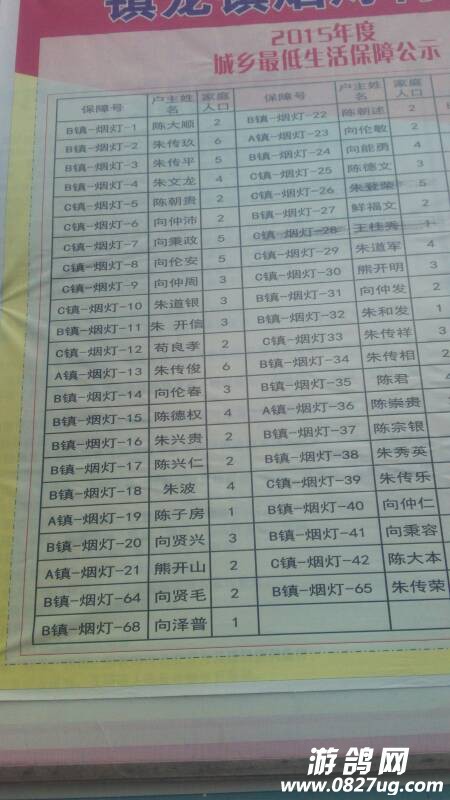 镇龙镇烟灯村
2015年度
城乡最低生活保障公示
保障号 户主姓名 家庭人口 保障号 户主姓名 家庭人口
B镇-烟灯-1 陈大顺 2 B镇-烟灯-22 陈朝述 2
B镇-烟灯-2 朱传玖 6 A镇-烟灯-23 向伦敏 2
B镇-烟灯-3 朱传平 5 B镇-烟灯-24 向能勇 4
B镇-烟灯-4 朱文龙 4 C镇-烟灯-25 陈德文 3
C镇-烟灯-5 陈朝贵 2 C镇-烟灯-26 朱登荣 5
C镇-烟灯-6 向仲沛 2 B镇-烟灯-27 鲜福文 2
C镇-烟灯-7 向秉政 5 C镇-烟灯-28 王桂秀 1
C镇-烟灯-8 向伦安 5 C镇-烟灯-29 朱道军 4
C镇-烟灯-9 向仲周 3 C镇-烟灯-30 熊开明 3
C镇-烟灯-10 朱道银 3 B镇-烟灯-31 向仲发 2
B镇-烟灯-11 朱 开信 3 B镇-烟灯-32 朱和发 1
C镇-烟灯-12 苟良孝 2 C镇-烟灯33 朱传祥 3
A镇-烟灯-13 朱传俊 6 B镇-烟灯-34 朱传相 2
B镇-烟灯-14 向伦春 3 B镇-烟灯-35 陈君 4
B镇-烟灯-15 陈德权 4 A镇-烟灯-36 陈崇贵
B镇-烟灯-16 朱兴贵 2 B镇-烟灯-37 陈宗银
B镇-烟灯-17 陈兴仁 2 B镇-烟灯-38 朱秀英
B镇-烟灯-18 朱波 4 C镇-烟灯-39 朱传乐
A镇-烟灯-19 陈子房 1 B镇-烟灯-40 向仲仁
B镇-烟灯-20 向贤兴 3 B镇-烟灯-41 向秉容
A镇-烟灯-21 熊开山 2 C镇-烟灯-42 陈大本
B镇-烟灯-64 向贤毛 2 B镇-烟灯-65 朱传荣
B镇-烟灯-68 向泽普 1
游鸽网
www.0827ug.com